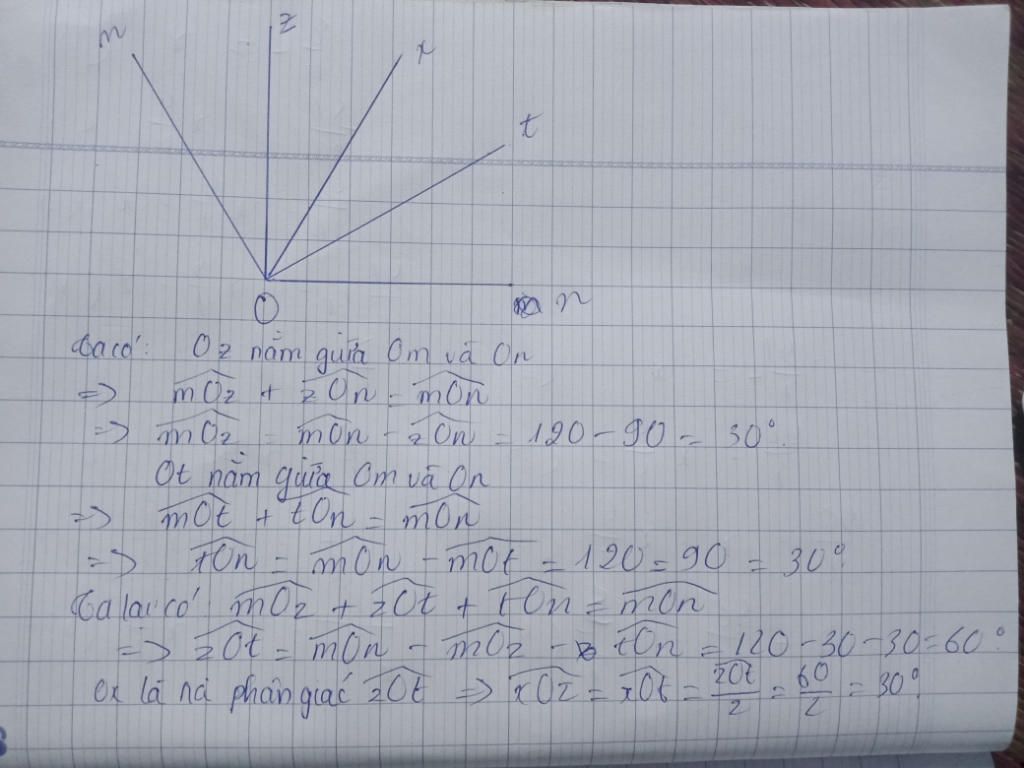 m z x
t
O n
Ta có: Oz nằm giữa Om và On
=> mOz + zOn = mOn
=> mOz = mOn - zOn = 120 - 90 = 30°.
Ot nằm giữa Om và On
=> mOt + tOn = mOn
=> tOn = mOn - mOt = 120 = 90 = 30°
Ta lại có mOz + zOt + tOn = mOn
=> zOt = mOn - mOz - tOn = 120 - 30 - 30 = 60°
Ox là phân giác zOt => xOz = xOt = zOt/2 = 60/2 = 30°